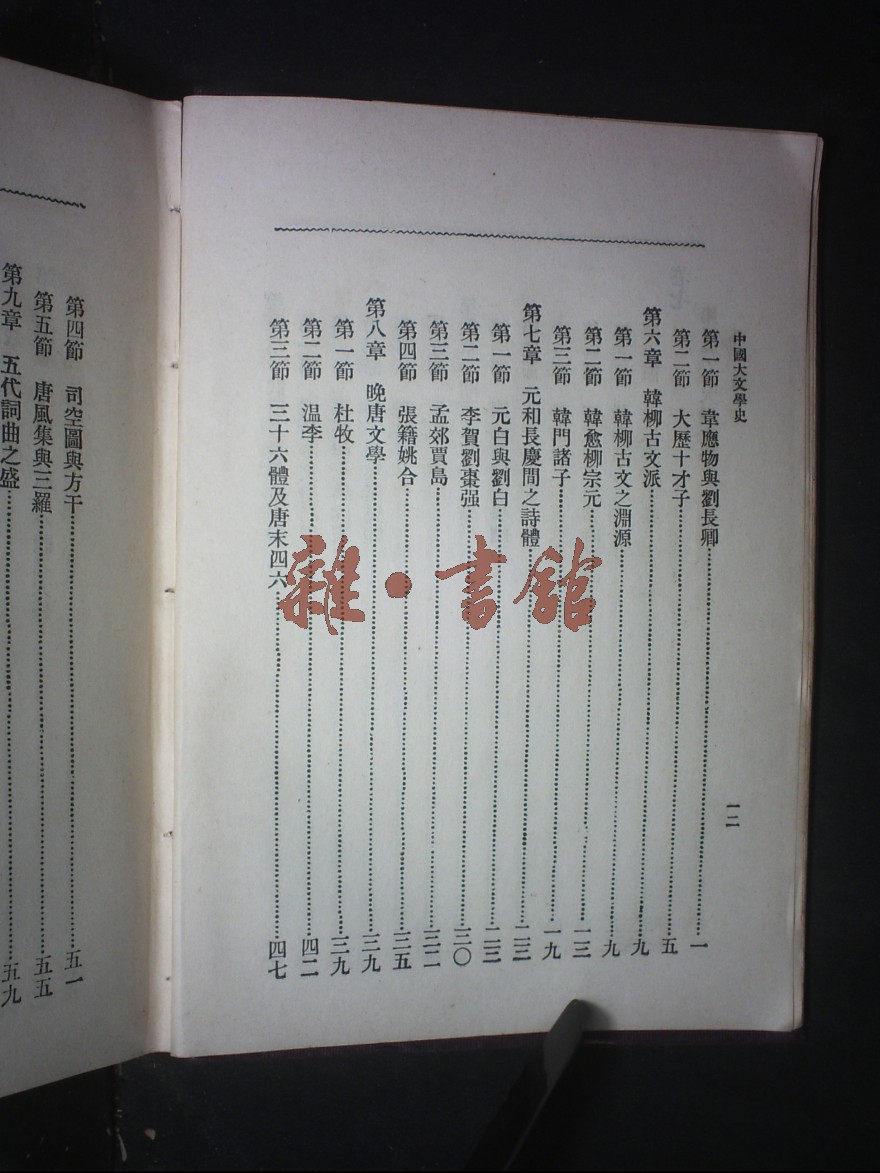 中國大文學史
一二
第一節　韋應物與劉長卿……一
第二節　大歷十才子……五
第六章　韓柳古文派……九
第一節　韓柳古文之淵源……九
第二節　韓愈柳宗元……一三
第三節　韓門諸子……一九
第七章　元和長慶間之詩體……二三
第一節　元白與劉白……二三
第二節　李賀劉棗强……三〇
第三節　孟郊賈島……三二
第四節　張籍姚合……三五
第八章　晚唐文學……三九
第一節　杜牧……三九
第二節　温李……四二
第三節　三十六體及唐末四六……四七
第四節　司空圖與方干……五一
第五節　唐風集與三羅……五五
第九章　五代詞曲之盛……五九
雜·書館